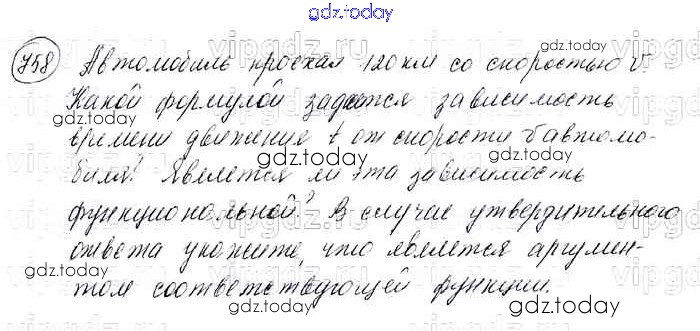 gdz.today
758 Автомобиль проехал 120 км со скоростью v.
Какой формулой задается зависимость
времени движения t от скорости v автомо-
биля? Является ли эта зависимость
функциональной? В случае утвердительного
ответа укажите, что является аргумен-
том соответствующей функции.
gdz.today
gdz.today
gdz.today
gdz.today
gdz.today
gdz.today
gdz.today
gdz.today